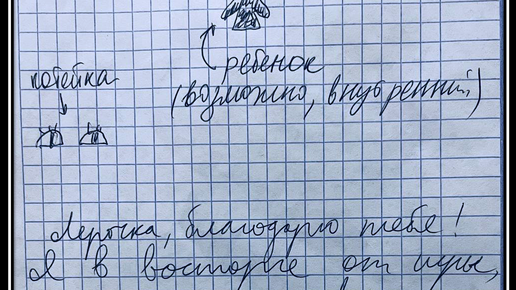 ребёнок
котейка
(возможно, внутренний)
Лерочка, благодарю тебе!
Я в восторге от игры,